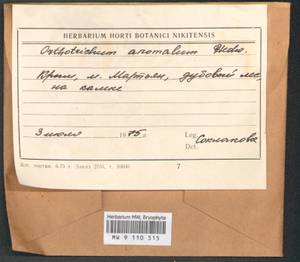 HERBARIUM HORTI BOTANICI NIKITENSIS
Orthotrichum anomalum Hedw.
Крым, м. Мартьян, дубовый лес,
на камне
3 июля 1975 г. Leg.
Det.
7
Herbarium MW, Bryophyta
MW 9 110 515